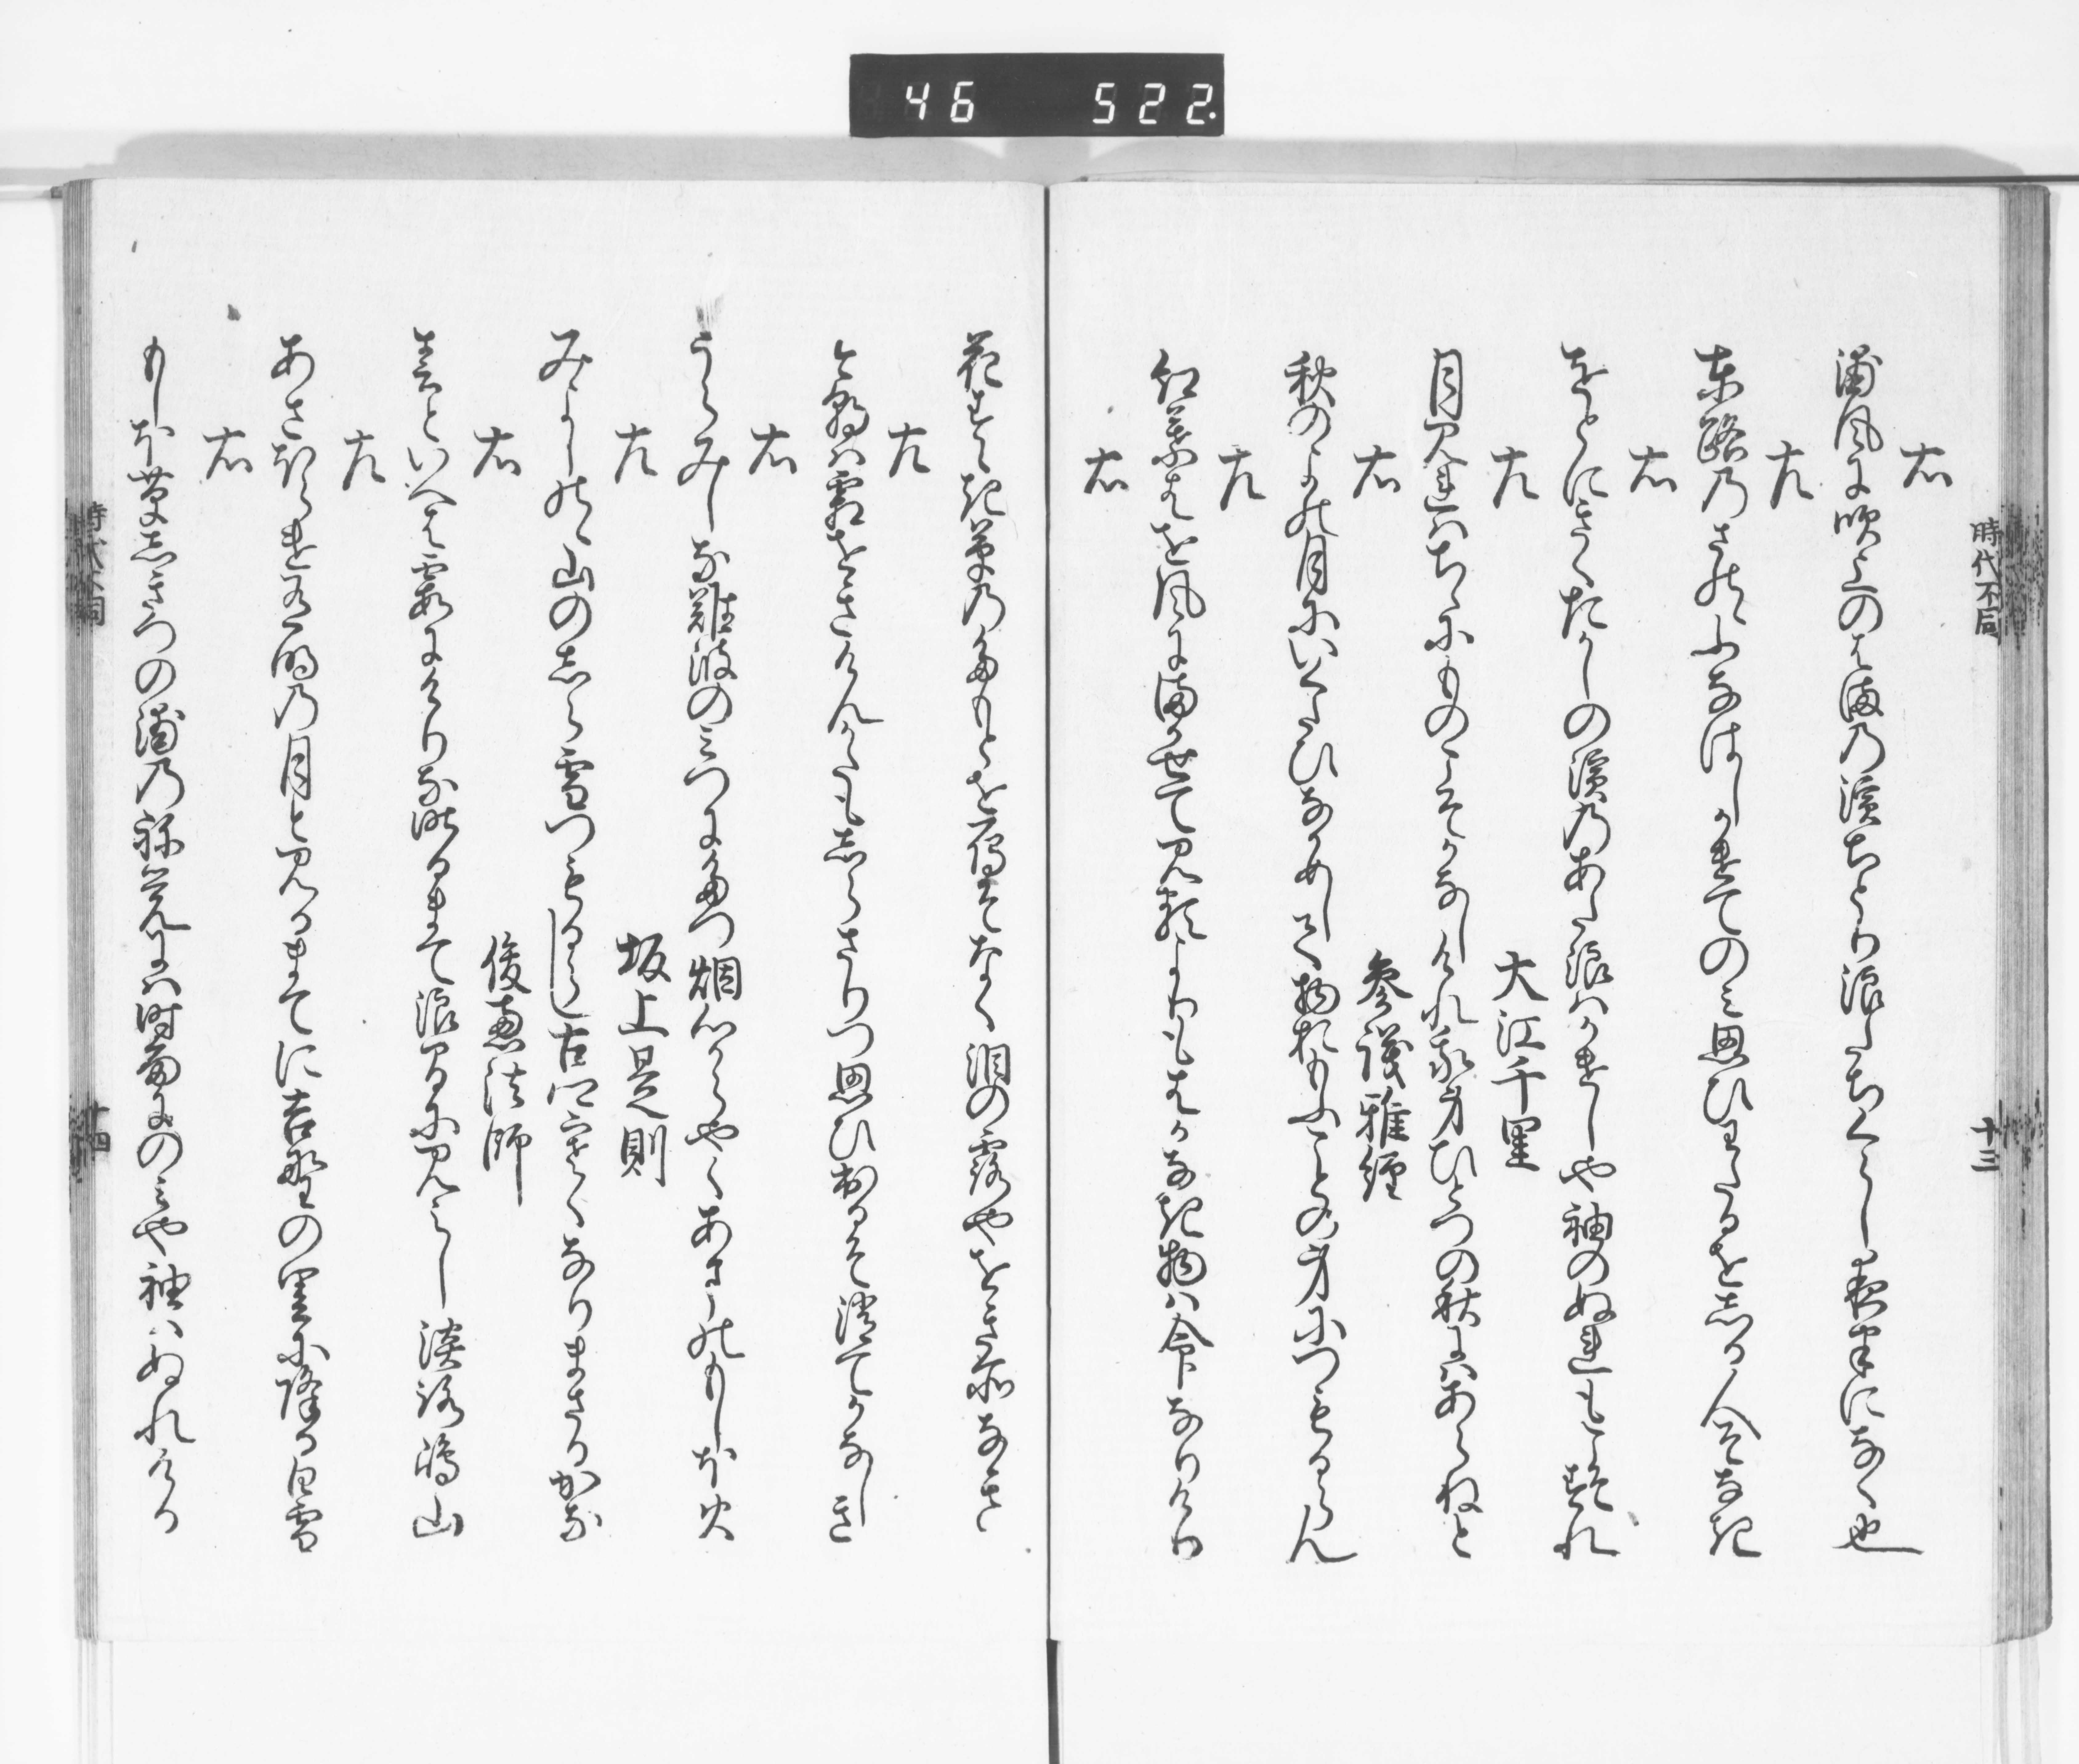 46 522.
時代不同
十三
右
浦風に吹上のはまの濱ちとり浪たちくらし夜半になく也
左
東路のさのゝふなはしかけてのみ思ひわたるを志る人そなき
右
をとにきくたかしの濱のあた浪はかけしや袖のぬれもこそすれ
左 大江千里
月見れはちゝにものこそかなしけれ我身ひとつの秋にはあらねと
右 参議雅経
秋のよの月にいくたひなかめして物おもふことの身につもるらん
左
紅葉はを風にまかせて見るよりもはかなき物は命なりけり
右
花すゝき草のたもとをかりそなく泪の露やをき所なき
左
今朝はしもをきけんかたも志らさりつ思ひ出るそ消てかなしき
右
うらみしな難波のみつにたつ烟心からやくあまのもしほ火
左 坂上是則
みよしのゝ山の志ら雪つもるらし古郷さむくなりまさるかな
右 俊恵法師
春といへは霞にけりな昨日まて浪間に見えし淡路嶋山
左
あさほらけ有明の月と見るまてに吉野の里に降る白雪
右
もしほ草志きつの浦のね覚には時雨にのみや袖はぬれける
時代不同
十四